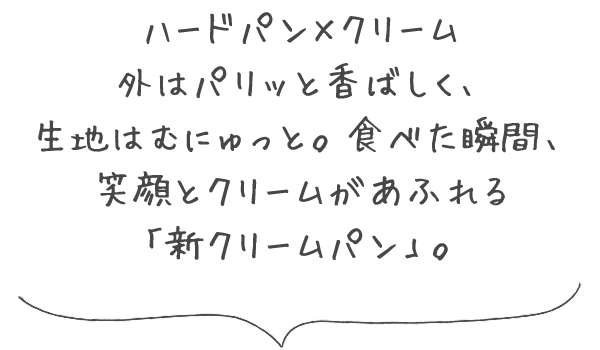 ハードパン×クリーム
外はパリッと香ばしく、
生地はむにゅっと。食べた瞬間、
笑顔とクリームがあふれる
「新クリームパン」。